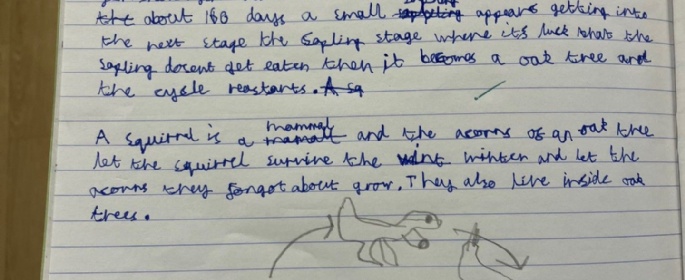 the about 180 days a small appears getting into
the next stage the Sapling stage where its luck that the
sapling docent get eaten then it becomes a oak tree and
the cycle reastarts. A sq
A squirrel is a mammal and the acorns of an oak tree
let the squirrel survive the wint wintter and let the
acorns they forgot about grow. They also live inside oak
trees.